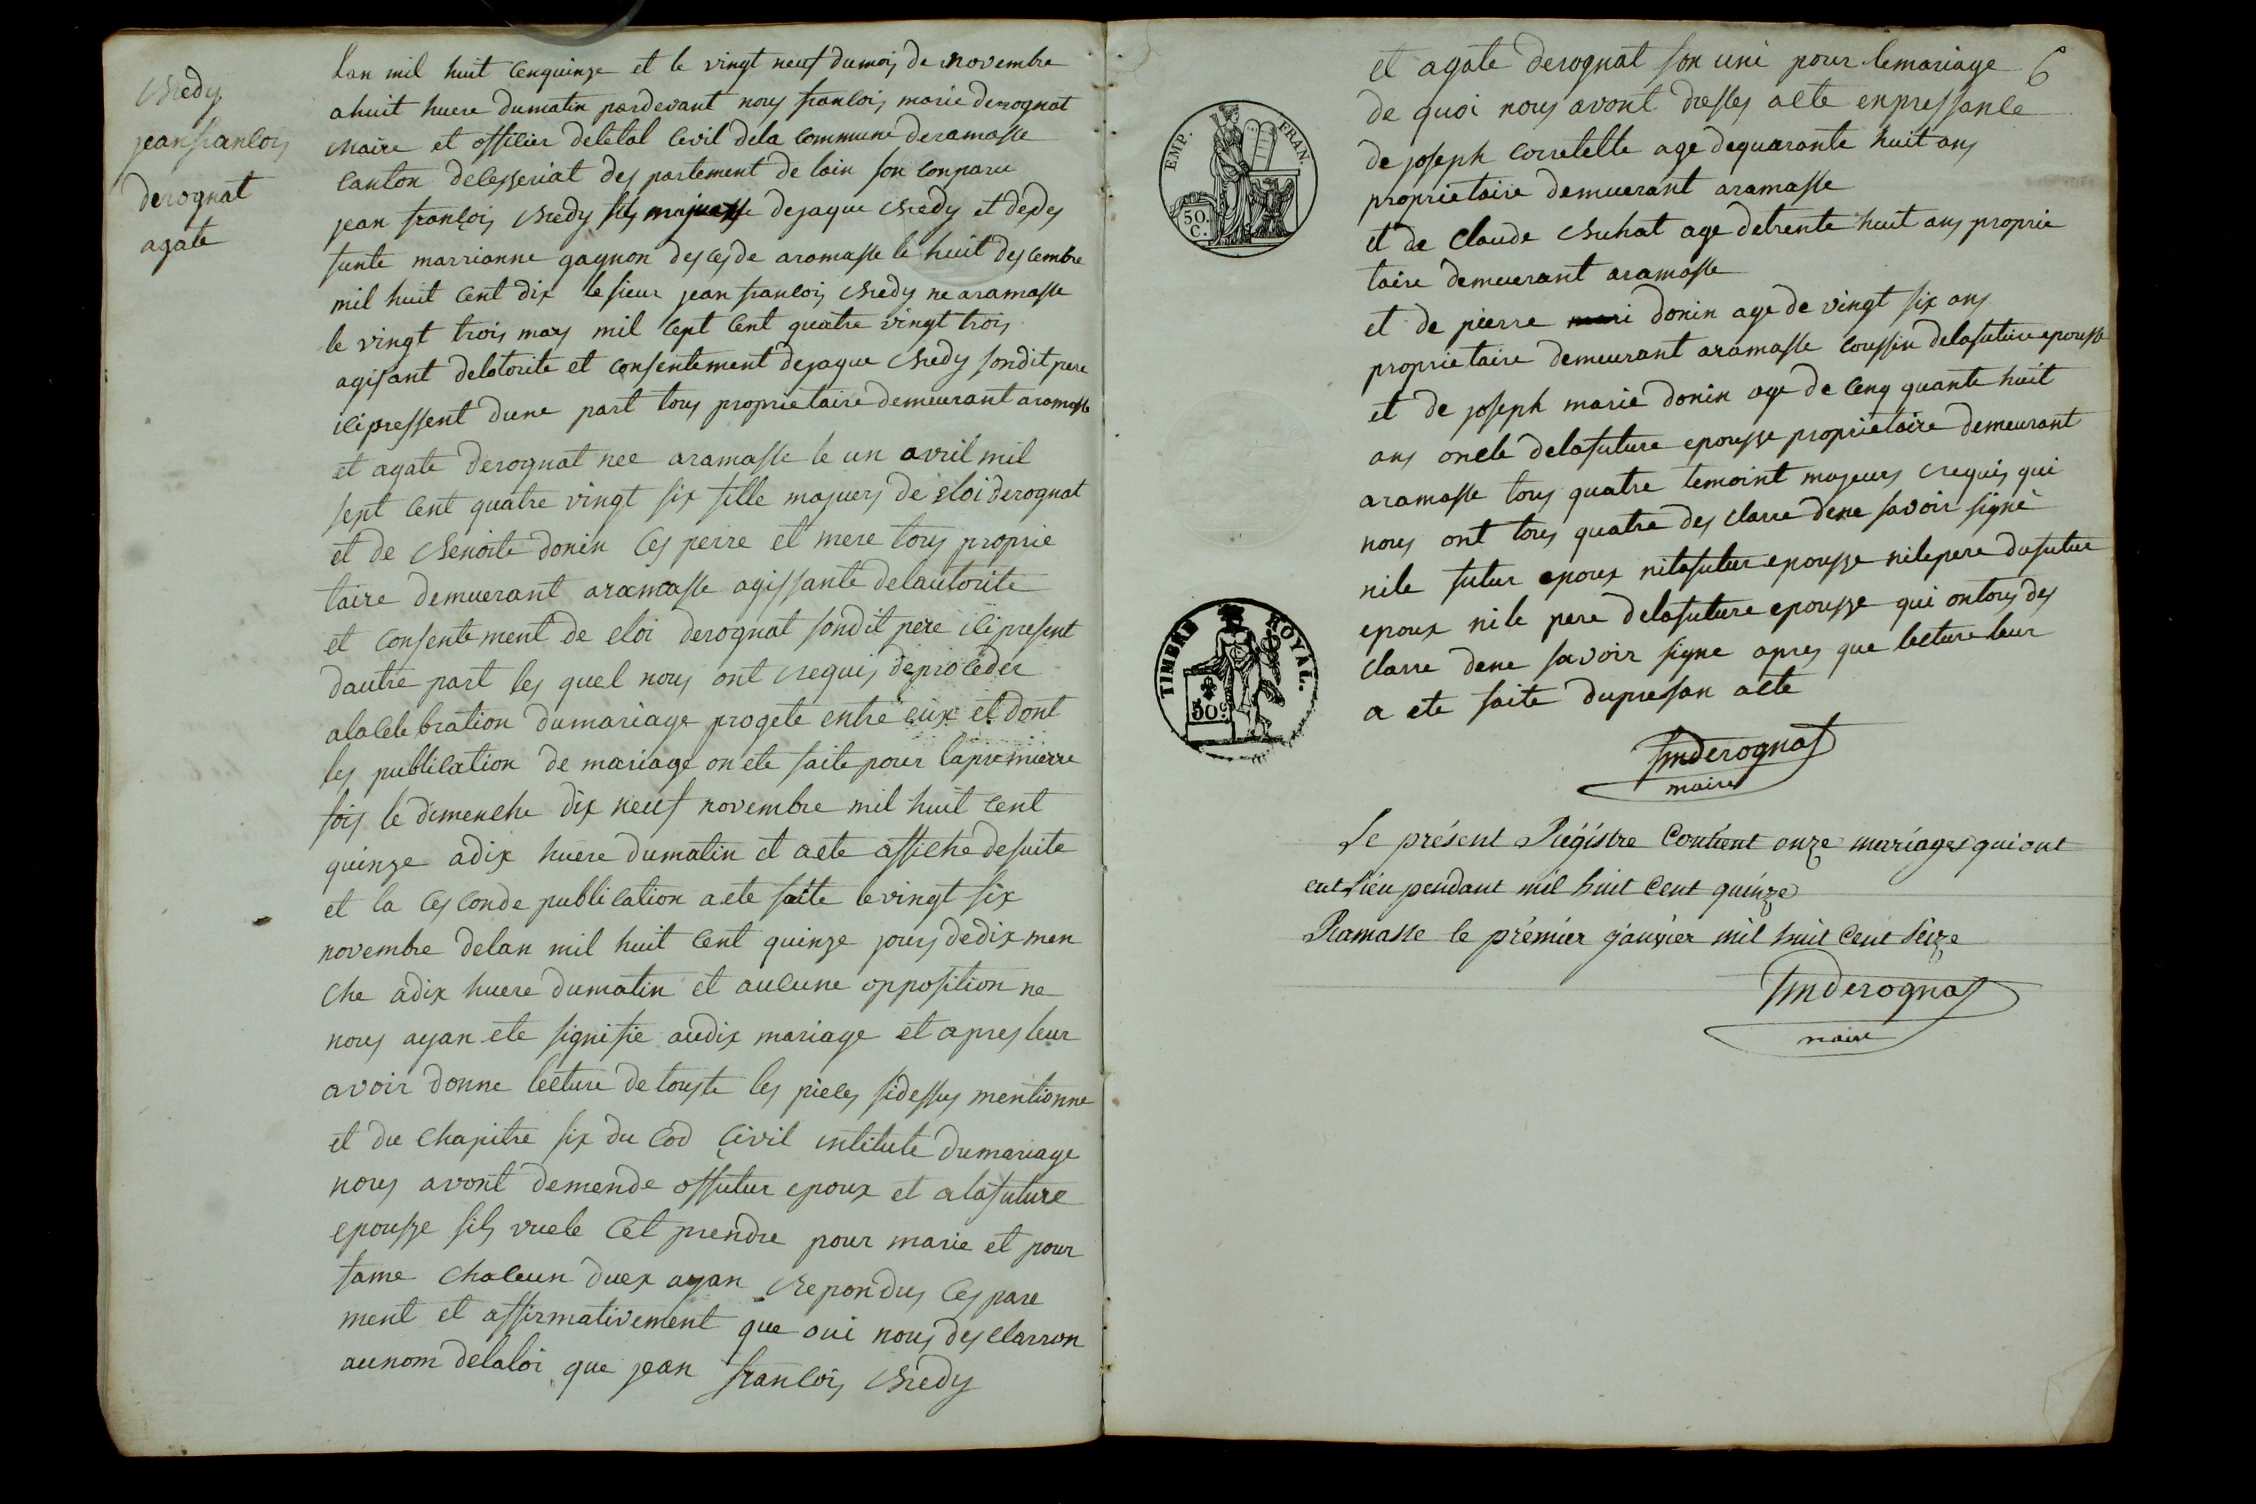 Bredy
jean francois
derognat
agate
lan mil huit cenquinze et le vingt neuf dumois de novembre
ahuit huere dumatin pardevant nous francois marie derognat
maire et officier deletal civil dela commune deramasse
canton decesseriat des partement de lain son conparu
jean françois Bredy fils dejaque Bredy et dedes
funte marrianne gagnon desçesde aramasse le huit descembre
mil huit cent dix le sieur jean francois Bredy ne aramasse
le vingt trois mars mil cept cent quatre vingt trois
agisant delotorite et consentement dejaque Bredy sondit pere
icipressent dune part tous proprietaire demeurant aramasse
et agate derognat nee aramasse le un avril mil
sept cent quatre vingt six fille majuers de eloi derognat
et de Benoite donin ces perre et mere tous proprie
taire demuerant aramasse agissante delautorite
et consentement de eloi derognat sondit pere ici present
dautre part les quel nous ont requis deproceder
alacelebration dumariage progete entre eux et dont
les publication de mariage on ete faite pour lapremierre
fois le dimenche dix neuf novembre mil huit cent
quinze adix huere dumatin et aete affiche desuite
et la cesconde publication aete faite levingt six
novembre delan mil huit cent quinze jours dedixmen
che adix huere dumatin et aucune opposition ne
nous ayan ete signifie audix mariage et apres leur
avoir donne lecture de touste les pieces sidessus mentionne
et du chapitre six du cod civil intitule dumariage
nous avont demende offutur epoux et alafuture
epousse sils vuele cet prendre pour marie et pour
fame chacun duex ayan repondus ces pare
ment et affirmativement que oui nous desclarron
aunom delaloi que jean francois Bredy
6
et agate derognat son uni pour lemariage
de quoi nous avont dresses acte enpressance
de joseph correlette age dequarante huit ans
proprietaire demuerant aramasse
et de Claude Buhat age detrente huit ans proprie
taire demeurant aramasse
et de pierre donin age de vingt six ans
proprietaire demeurant aramasse coussin delafuture epousse
et de joseph marie donin age de cenq quante huit
ans oncle delafuture epousse proprietaire demeurant
aramasse tous quatre temoint majeurs requis qui
nous ont tous quatre des clarre dene savoir signé
nile futur epoux nilafutur epousse nilepere dufutur
epoux nile pere delafuture epousse qui ontous des
clarre dene savoir signe apres que lecture leur
a ete faite dupresan acte
fmderognat
maire
Le présent Régistre Contient onze mariages qui ont
eut lieu pendant mil huit Cent quinze
Ramasse le prémier janvier mil huit Cent Seize
fmderognat
maire
EMP. FRAN.
50.
C.
TIMBRE ROYAL.
50c